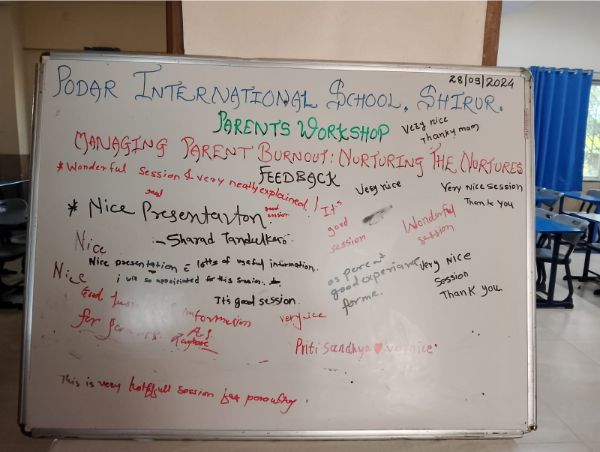 28/09/2024
PODAR INTERNATIONAL SCHOOL, SHIRUR.
PARENTS WORKSHOP
Very nice
Thanky mam
MANAGING PARENT BURNOUT: NURTURING THE NURTURES
FEEDBACK
* Wonderful session & very neatly explained!
good
Very nice
Very nice session
Thank you
* NICE PRESENTARTON.
good
session
It's
good
session
Wonderful
session
- Sharad Tandulkers.
Nice
Nice presentation c lotts of useful information.
Nice
i will so appreciated for this session.
as perent
good experiance
for me.
Very nice
Session
Thank you.
It's good session.
Good
information
for
very nice
Priti Sandhya ♥ very nice
This is very session